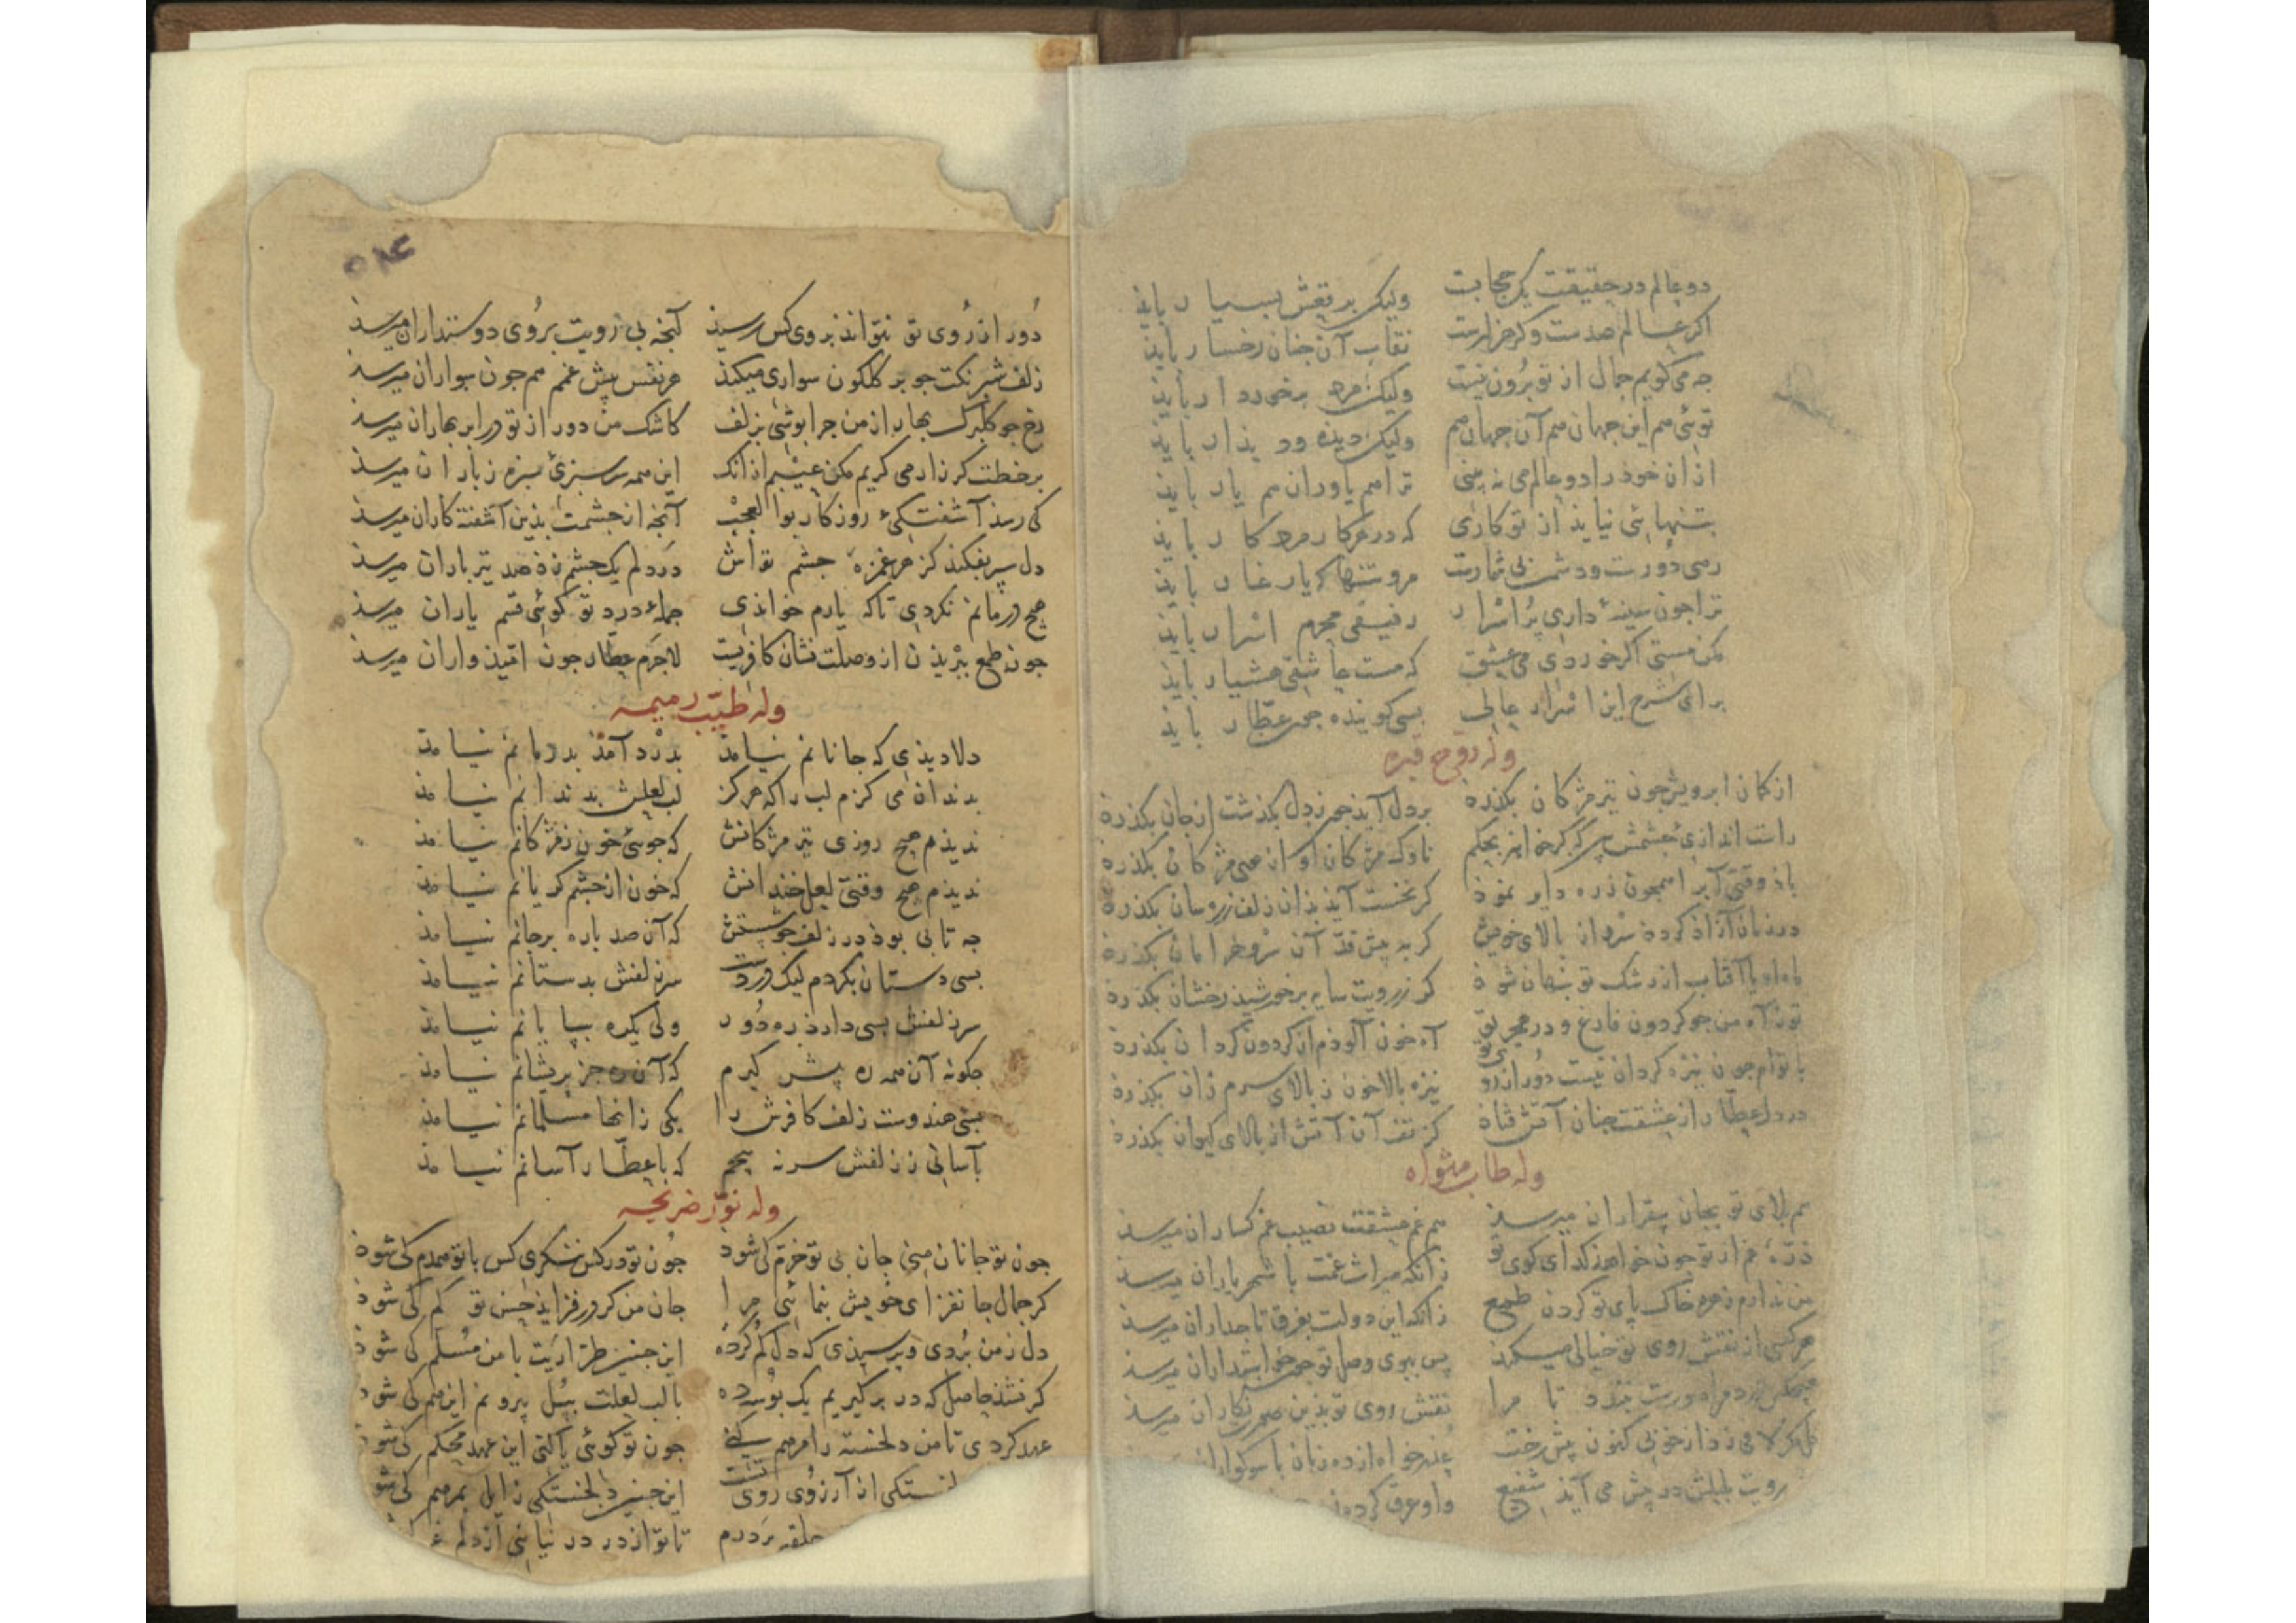 دو عالم در حقیقت یک حجابت ولیکن برتعش بسیار باید
اکر عالم صدست وکر هزارست نقاب آن جنان رخسار باید
جه می کویم جمال از تو برون نیست ولیکن مرد برخوردار باید
توئی هم این جهان هم آن جهان هم ولیکن دیده ودیدار باید
ازان خود را دو عالم می نه بینی ترا هم یاوران هم یار باید
بتنهائی نیاید از تو کاری که در هر کار مرد کار باید
رهی دورست ودشمن بی شمارت مرو تنها که یار غار باید
ترا جون سینهٔ داری پر اسرار رفیقی محرم اسرار باید
مکن مستی اکر خوردی می عشق که مست عاشقی هشیار باید
برای شرح این اسرار عالی بسی کوینده جون عطار باید
وله روح قبره
از کمان ابرویش جون تیر مژکان بکذرد بر دل آید جون ز دل بکذشت از جان بکذرد
راست اندازی جشمش بین که کر خواهد بحکم ناوک مژکان او از موی مژکان بکذرد
باد وقتی آب را همجون زره داند نمود کر نخست آید بدان زلف زره‌سان بکذرد
در زمان آزاد کردد سرو از بالای خویش کر به پیش قد آن سرو خرامان بکذرد
ماه او یا آفتاب از رشک تو بنهان شود کر ز رویت سایه بر خورشید رخشان بکذرد
تو ز آه من جو کردون فارغ و در هجر تو آه خون آلودم از کردون کردان بکذرد
با تو ام جون نیزه کردان نیست دور از روی تو نیزه بالا خون ز بالای سرم زان بکذرد
در دل عطار از عشقت جنان آتش فتاد کز تف آن آتش از بالای کیوان بکذرد
وله طاب مثواه
هم بلای تو بجان بیقراران میرسد هم غم عشقت نصیب غمکساران میرسد
ذرهٔ غم از تو جون خواهد کدای کوی تو زانکه میراث غمت با شهریاران میرسد
من ندارم زهره خاک پای تو کردن طمع زانکه این دولت بفرق تاجداران میرسد
هر کسی از نقش روی تو خیالی میکند پس ببوی وصل تو جون خواستاران میرسد
نقش روی تو بدین صورت نکاران میرسد
کل مکر لافی زد از خوبی کنون پیش رخت عذر خواه از ده زبان با سوکواران
رویت بلبلش در پیش می آید شفیع واو عرق کرده
۵۸۴
دور از روی تو نتواند بروی کس رسید آنجه بی رویت بروی دوستداران میرسد
زلف شبرنکت جو بر کلکون سواری میکند هر نفس پیش غمم هم جون سواران میرسد
رخ جو کلبرک بهار از من جرا پوشی بزلف کاشک من دور از تو در ابر بهاران میرسد
بر خطت کر زار می کریم مکن عیبم ازانک این همه سرسبزی سبزه ز باران میرسد
کی رسد آشفتکیء روزکار بوالعجب آنجه از جشمت بدین آشفته کاران میرسد
دل سپر بفکند کز هر غمزهٔ جشم تواش در دلم یک جشم زد صد تیرباران میرسد
هیج درمانم نکردی تاکه یارم خواندی جملهٔ درد تو کوئی قسم یاران میرسد
جون طمع ببریدن از وصلت نشان کافریست لاجرم عطار جون امیدواران میرسد
وله طیب رمیمه
دلا دیدی که جانانم نیامد بدرد آمد بدرمانم نیامد
بدندان می کزم لب را که هرکز لب لعلش بدندانم نیامد
ندیدم هیج روزی تیر مژکانش که جوی خون ز مژکانم نیامد
ندیدم هیج وقتی لعل خندانش که خون از جشم کریانم نیامد
جه تابی بود در زلف جو شستش که آن صد باره بر جانم نیامد
بسی دستان بکردم لیک در دست سر زلفش بدستانم نیامد
سر زلفش بسی دارد ره دور ولی یکره بپایانم نیامد
جکونه آن همه ره پیش کیرم که آن ره جز پریشانم نیامد
بسی هندوست زلف کافرش را یکی زانها مسلمانم نیامد
بآسانی ز زلفش سر نه پیجم که با عطار آسانم نیامد
وله نور ضریحه
جون تو جانان منی جان بی تو خرم کی شود جون تو در کس ننکری کس با تو همدم کی شود
کر جمال جانفزای خویش بنمائی مرا جان من کر در فزاید حسن تو کم کی شود
دل ز من بردی وپرسیدی که دل کم کرده این جنین طراریت با من مسلم کی شود
کر نشد حاصل که در بر کیریم یک بوسه ده با لب لعلت بپل بیرونم این هم کی شود
عهد کردی تا من دلخسته را مرهم کنی جون تو کوئی یا کنی این عهد محکم کی شود
خستکی از آرزوی روی تست این جنین دلخستکی زایل بمرهم کی شو
حلقه بر درم تا تو از در در نیائی از دلم غم